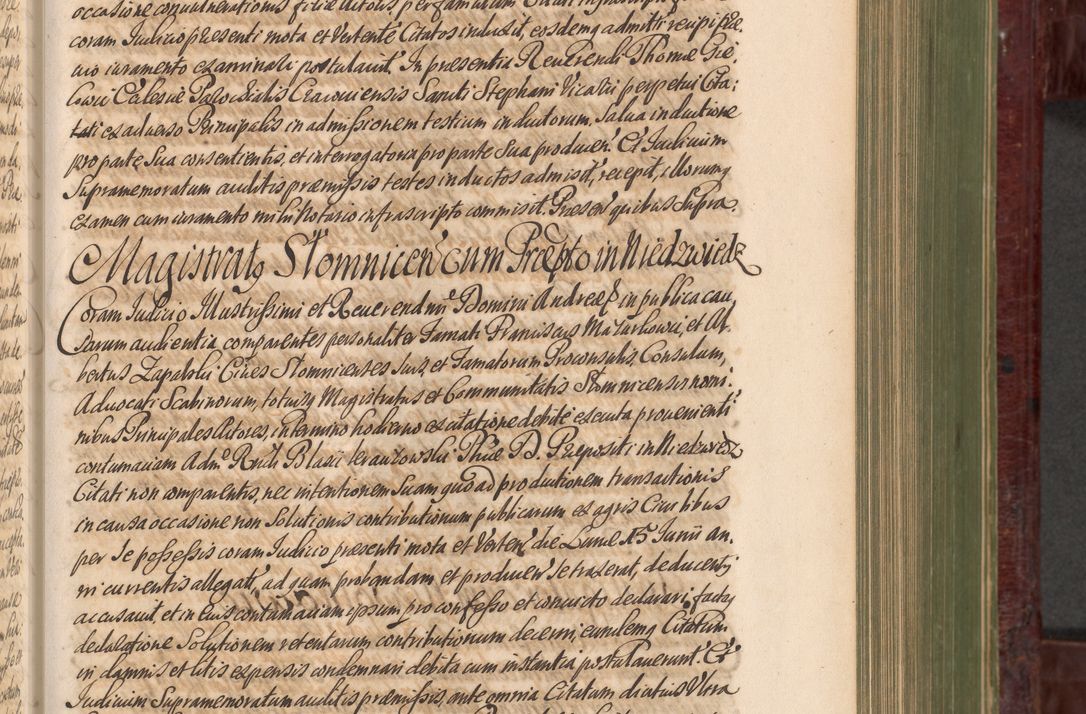 occasione convulnerationis filiæ Actoris, per famulum Citati
coram Judicio præsenti mota et Verten̄ Citatos induxit, eosdemq admitti recipi præ„
vio iuramento examinari postulavit. In præsentia Reverendi Thomæ
Ecclesiæ Parochialis Cracoviensis Sancti Stephani Vicarii perpetui Cita„
tati ex adverso Principalis in admissionem testium inductorum. Salva inductione
pro parte Sua consentientis, et interrogatoria pro parte Sua producen̄. Et Judicium
Supramemoratum auditis præmissis testes inductos admisit, recepit, illorumq
examen cum iuramento mihi Notario infrascripto commisit. Præsen̄ quibus Supra.
Magistratq Słomnicen̄ cum Præpto in Niedzwiedz
Coram Judicio Illustrissimi et Reverendm̄i Domini Andreæ p in publica cau„
sarum audientia comparentes personaliter Famati Franciscus Mazurkowic, et Al„
bertus Zapalski Cives Słomnicenses Suis, et Famatorum Proconsulis, Consulum,
Advocati Scabinorum, totiusq Magistratus et Communitatis Słomnicensis nomi„
nibus Principales Actores, in termino hodierno ex citatione debite executa provenienti
contumaciam Admo Rndi Blasii Phiæ D. Præpositi in Niedzwiedz
Citati non comparentis, nec intentionem Suam quoad productionem transactionis
in causa occasione non Solutionis contributionum publicarum ex agris Civilibus
per Se possessis coram Judicio præsenti mota et Verten̄ die Lunæ 15 Junii an„
ni currentis allegat, ad quam probandam et producen̄ Se traxerat, deducentq
accusavit et in Eius contumaciam ipsum pro confesso et convicto declarari, factaq
declaratione Solutionem retentarum contributionum decerni, eundemq Citatum
in damnis et litis expensis condemnari debita cum instantia postulaverunt. Et
Judicium Supramemoratum auditis præmissis, ante omnia Citatum diutius Ultra